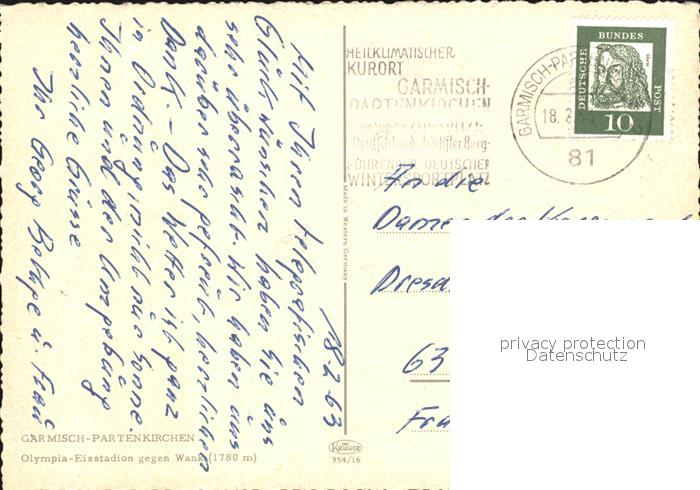 18.2.63
Mit Ihren telegrafischen
Glückwünschen haben Sie uns
sehr überrascht. Wir haben uns
darüber sehr gefreut, herzlichen
Dank. - Das Wetter ist ganz
in Ordnung, nicht nur Sonne.
Ihnen und der Umgebung
herzliche Grüsse
Ihr Georg u. Frau
GARMISCH-PARTENKIRCHEN
Olympia-Eisstadion gegen Wank (1780 m)
Made in Western Germany
KRÜGER
954/16
HEILKLIMATISCHER
KURORT
GARMISCH-
PARTENKIRCHEN
ZUGSPITZE
Deutschlands höchster Berg-
FÜHRENDER DEUTSCHER
WINTERSPORTPLATZ
GARMISCH-PA
18.2
81
DEUTSCHE BUNDES POST
10
An die
Damen der
Dresd
63
Fra
privacy protection
Datenschutz